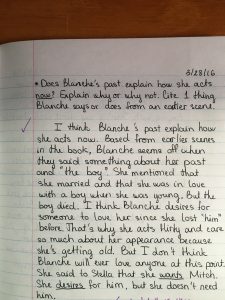 3/28/16
*Does Blanche's past explain how she acts
now? Explain why or why not. Cite 1 thing
Blanche says or does from an earlier scene.
I think Blanche's past explain how
she acts now. Based from earlier scenes
in the book, Blanche seems off when
they said something about her past
and "the boy". She mentioned that
she married and that she was in love
with a boy when she was young. But the
boy died. I think Blanche desires for
someone to love her since she lost "him"
before. That's why she acts flirty and care
so much about her appearance because
she's getting old. But I don't think
Blanche will ever love anyone at this point.
She said to Stella that she wants Mitch.
She desires for him, but she doesn't need
him.